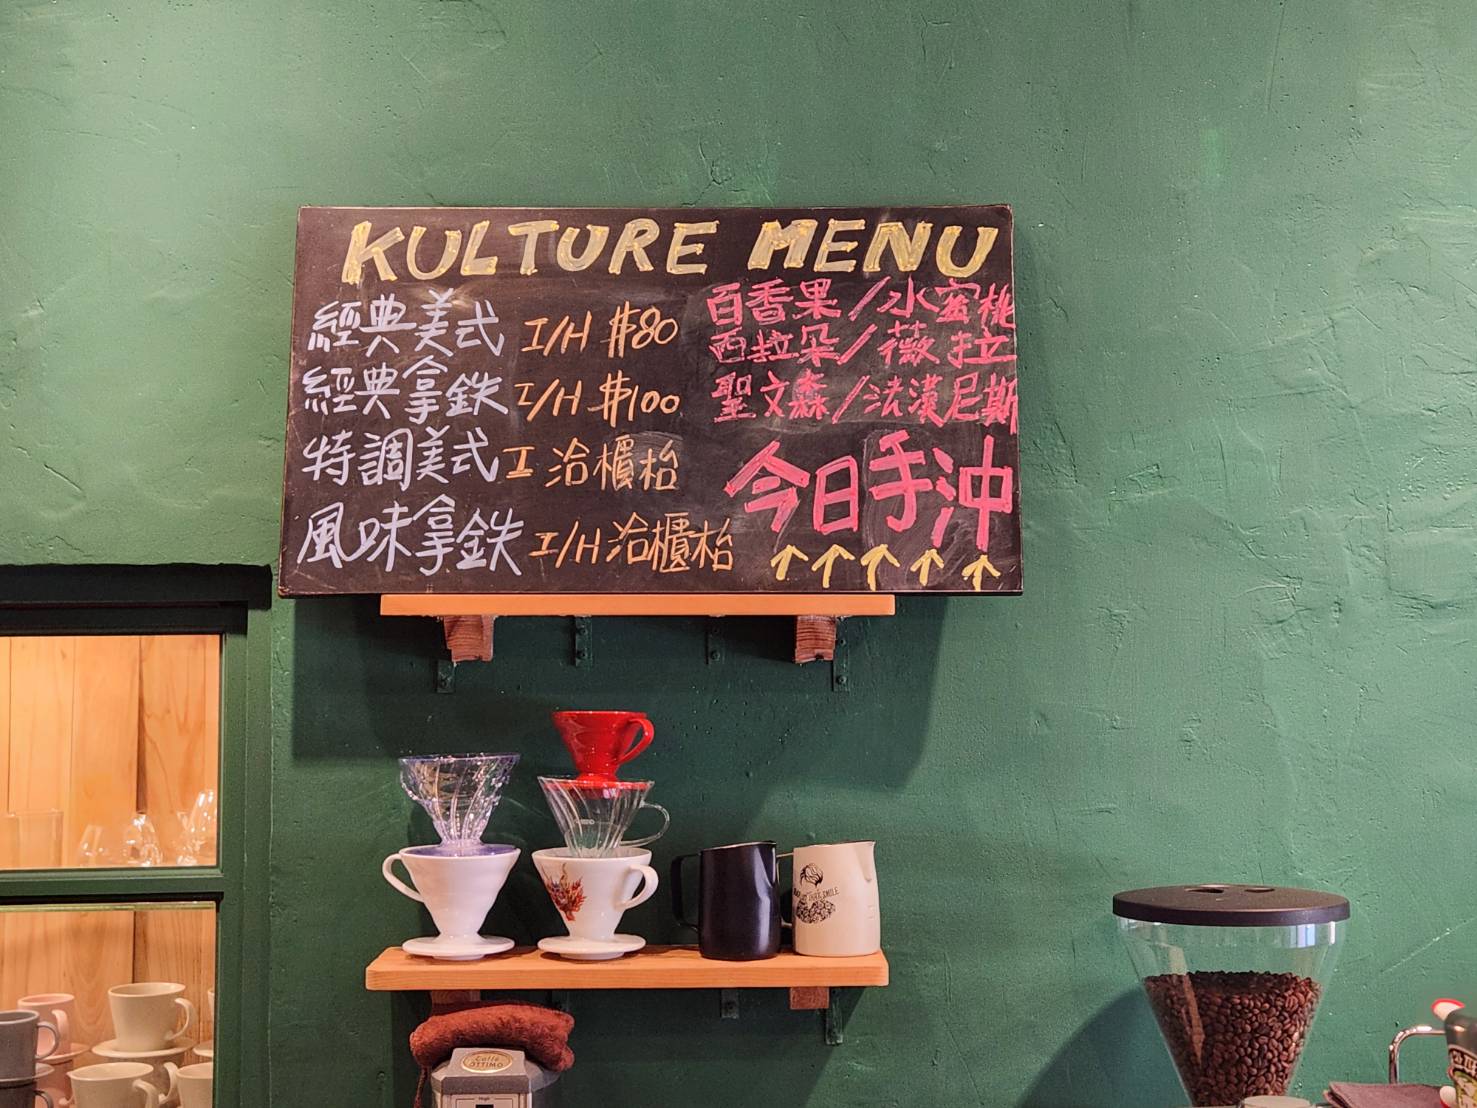 KULTURE MENU
經典美式 I/H $80
經典拿鉄 I/H $100
特調美式 I 洽櫃枱
風味拿鉄 I/H 洽櫃枱
百香果/水蜜桃
西拉朵/薇拉
聖文森/法漢尼斯
今日手沖
↑↑↑↑↑
Caffè
OTTIMO